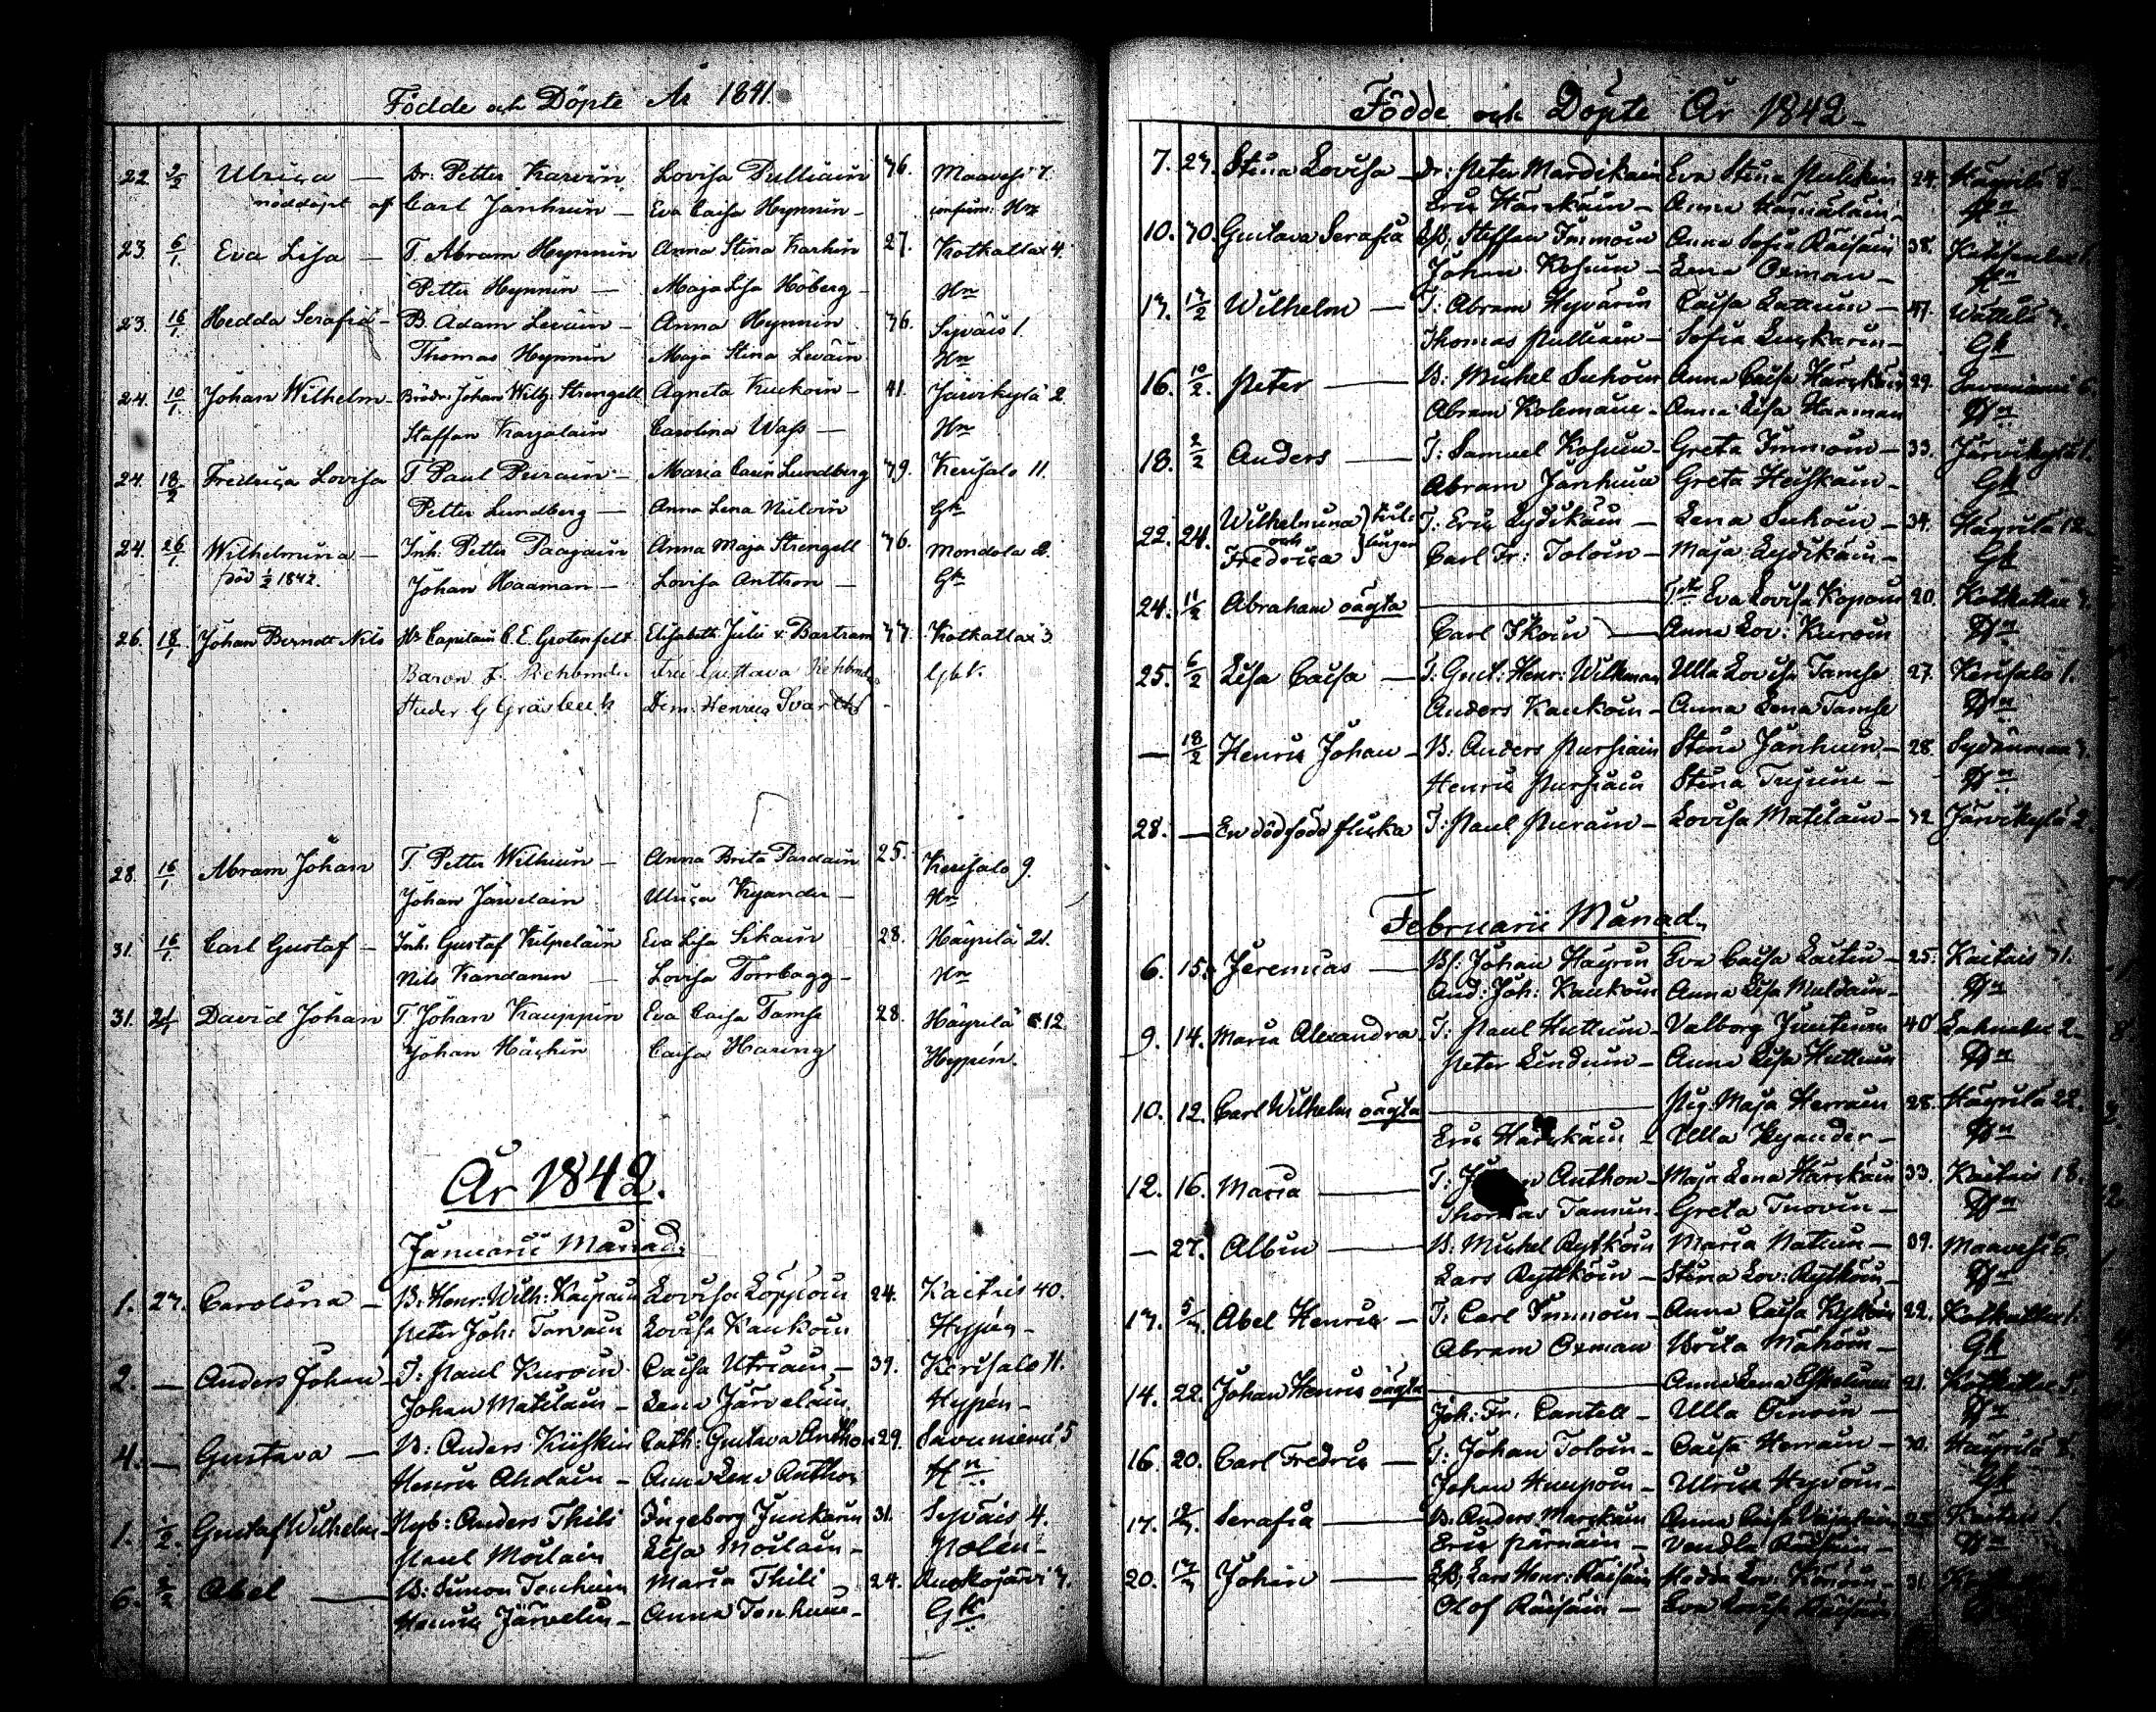 Födde och Döpte År 1841.
22 3/2 Ulrica — Dr: Petter Karvin Lovisa Pulliain 36. Maavesi 7.
nöddöpt af Carl Janhuin — Eva Caisa Hynnin — Hn
23. 6/1 Eva Lisa — T. Abram Hynnin Anna Stina Karhin 27. Kotkatlax 4.
Petter Hynnin — Maja Lisa Höberg — Hn
23. 16/1 Hedda Serafia — B. Adam Leväin — Anna Hynnin 36. Syväis 1.
Thomas Hynnin Maja Stina Leväin Hn
24. 10/1 Johan Wilhelm — Johan Wilh: Strengell Agneta Kuckoin — 41. Järvikylä 2.
Staffan Karjalain Carolina Wass — Hn
24. 18/2 Fredrica Lovisa T. Paul Purain — Maria Carin Lundberg 39. Kerisalo 11.
Petter Lundberg — Anna Lena Niiloin Gk
24. 26/1 Wilhelmina — Inh. Petter Paajain Anna Maja Strengell 36. Mondola 2.
död 1/2 1842. Johan Haaman — Lovisa Anthon — Gk
26. 18/1 Johan Berndt Nils Hr Capitain C. E. Grotenfelt Elisabeth Julie v. Bartram 37. Kotkatlax 3
Baron F. Rehbinder Gustava Rehbinder
Studer G Gräsbeck Dem. Henrica Svartz
28. 16/1 Abram Johan T. Petter Wilhuin — Anna Brita Pardain 25. Kerisalo 9.
Johan Järvelain Ulrica Kyander — Hn
31. 16/1 Carl Gustaf — Inh. Gustaf Kilpeläin Eva Lisa Sikain 28. Häyrilä 21.
Nils Kandanen — Lovisa Torrbagg — Hn
31. 24/1 David Johan T. Johan Kauppin Eva Caisa Tamse 28. Häyrilä 12.
Johan Häskin Caisa Haring Hypén.
År 1842.
Januarii Månad.
1. 27. Carolina — B: Henr: Wilh: Kaipain Lovisa Löppöin 24. Kaitais 40.
Peter Joh: Torvain Lovisa Kaukoin Hypén —
2. — Anders Johan — T: Paul Kuroin Caisa Utriain — 39. Kerisalo 11.
Johan Matilain — Lena Järveläin Hypén —
4. — Gustava — B: Anders Kiiskin Cath: Gustava Anthon 29. Savuniemi 5
Henric Aholain — Anna Lena Anthon Hn
1. Gustaf Wilhelm — Nyb: Anders Thili Ingeborg Junkarin 31. Syväis 4.
Paul Moilain Lisa Moilain — Polén —
6. 2/2 Abel — B: Simon Tenhuin Maria Thili 24. Auskojärvi 7.
Henric Järvelin — Anna Tenhuin — Gk
Födde och Döpte År 1842 —
7. 27. Stina Lovisa — Dr: Peter Mardikain Eva Stina Pulckin 24. Häyrilä 8 —
Eric Härskain — Anna Hämäläin — Hn
10. 30. Gustava Serafia Staffan Immoin Anna Sofia Räisäin 38. Kotkatlax 1.
Johan Kosuin — Lena Oxman — Hn
17. 17/2 Wilhelm — T: Abram Hyvärin Caisa Lattuin — 47. Wättilä 7.
Thomas Pulliain — Sofia Luskarin — Gk
16. 10/2 Peter — B: Michel Suhoin Anna Caisa Härskain 29. Savuniemi 6.
Abram Kolemain — Anna Lisa Haaman Hn
18. 2/2 Anders — T: Samuel Kosuin — Greta Immoin — 33. Järvikylä 1.
Abram Janhuin Greta Heiskain — Gk
22. 24. Wilhelmina och Fredrica } tvillingar T: Eric Lydikäin — Lena Suhoin — 34. Häyrilä 12 —
Carl Fr: Toloin — Maja Lydikäin — Gk
24. 11/2 Abraham oägta — Eva Lovisa Kopoin 20. Kotkatlax 7.
Carl Ikoin — Anna Lov: Kuroin Hn
25. 6/2 Lisa Caisa — T: Gust: Henr: Wilkman Ulla Lovisa Tamse 27. Kerisalo 1.
Anders Kaukoin — Anna Lena Tamse Hn
— 18/2 Henric Johan — B: Anders Pursiain Stina Janhuin — 28. Sydänmaa 7.
Henric Pursiain Stina Tujuin — Hn
28. — En dödfödd flicka T: Paul Purain — Lovisa Matilain — 32 Järvikylä 2.
Februarii Månad.
6. 15. Jeremias — Johan Häyrin Eva Caisa Laitin — 25. Kaitais 31.
And: Joh: Kaukoin Anna Lisa Muldain — Hn
9. 14. Maria Alexandra. T: Paul Huttuin — Valborg Juutiuin 40 Lahnalax 2 —
Peter Linduin — Anna Lisa Huttuin Hn
10. 12. Carl Wilhelm oägta — Pig. Maja Herrain 28. Häyrilä 22.
Eric Härskäin — Ulla Kyander — Hn
12. 16. Maria — T: Anthon — Maja Lena Härskain 33. Kaitais 18.
Thomas Tamuin. Greta Tuovin — Hn
— 27. Albin — B: Michel Rytköin Maria Natuin — 39. Maavesi 6.
Lars Rytköin — Stina Lov: Rytköin — Hn
13. 5/3 Abel Henric — T: Carl Immoin — Anna Caisa 22. Kotkatlax 1.
Abram Oxman Brita Mähöin — Gk
14. 22. Johan Henric oägta — Anna Lena 21. Kotkatlax 5.
Joh: Fr: Cantell — Ulla Oinoin — Hn
16. 20. Carl Fredric — T: Johan Toloin — Caisa Herrain — 30. Häyrilä 8.
Johan Huupoin — Ulrica Hyvöin — Gk
17. Serafia — B: Anders Marskain Anna Caisa 25 Kaitais 1.
Eric Pärnäin — Vendla
20. 17/3 Johan — Lars Henr: Räisäin Hedda Lov: 31.
Olof Räisäin — Eva Lovisa Räisäin